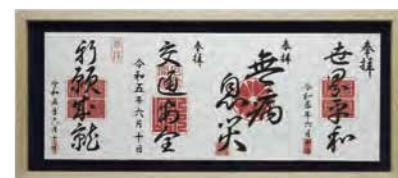 奉拝
世界平和
令和五年六月
奉拝
無病
息災
奉拝
交通安全
令和五年六月十日
祈願成就
令和五年六月十日